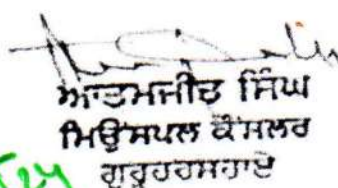 ਆਤਮਜੀਤ ਸਿੰਘ
ਮਿਉਂਸਪਲ ਕੌਂਸਲਰ
ਗੁਰੂਹਰਸਹਾਏ